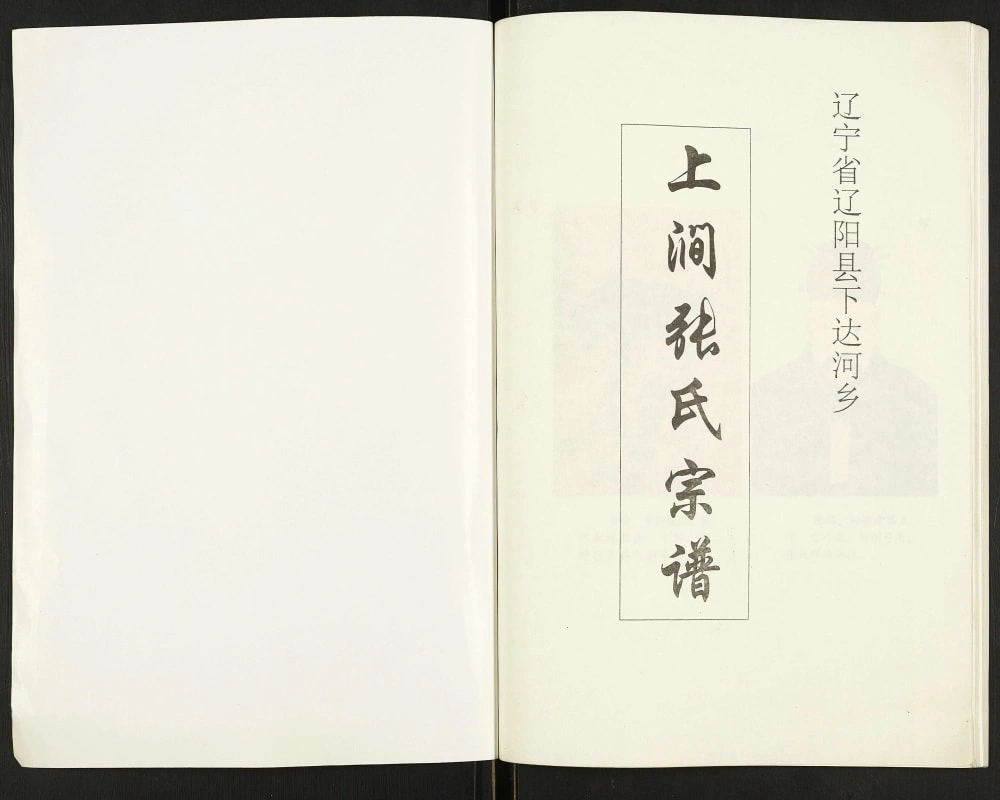 辽宁省辽阳县下达河乡
上涧张氏宗谱